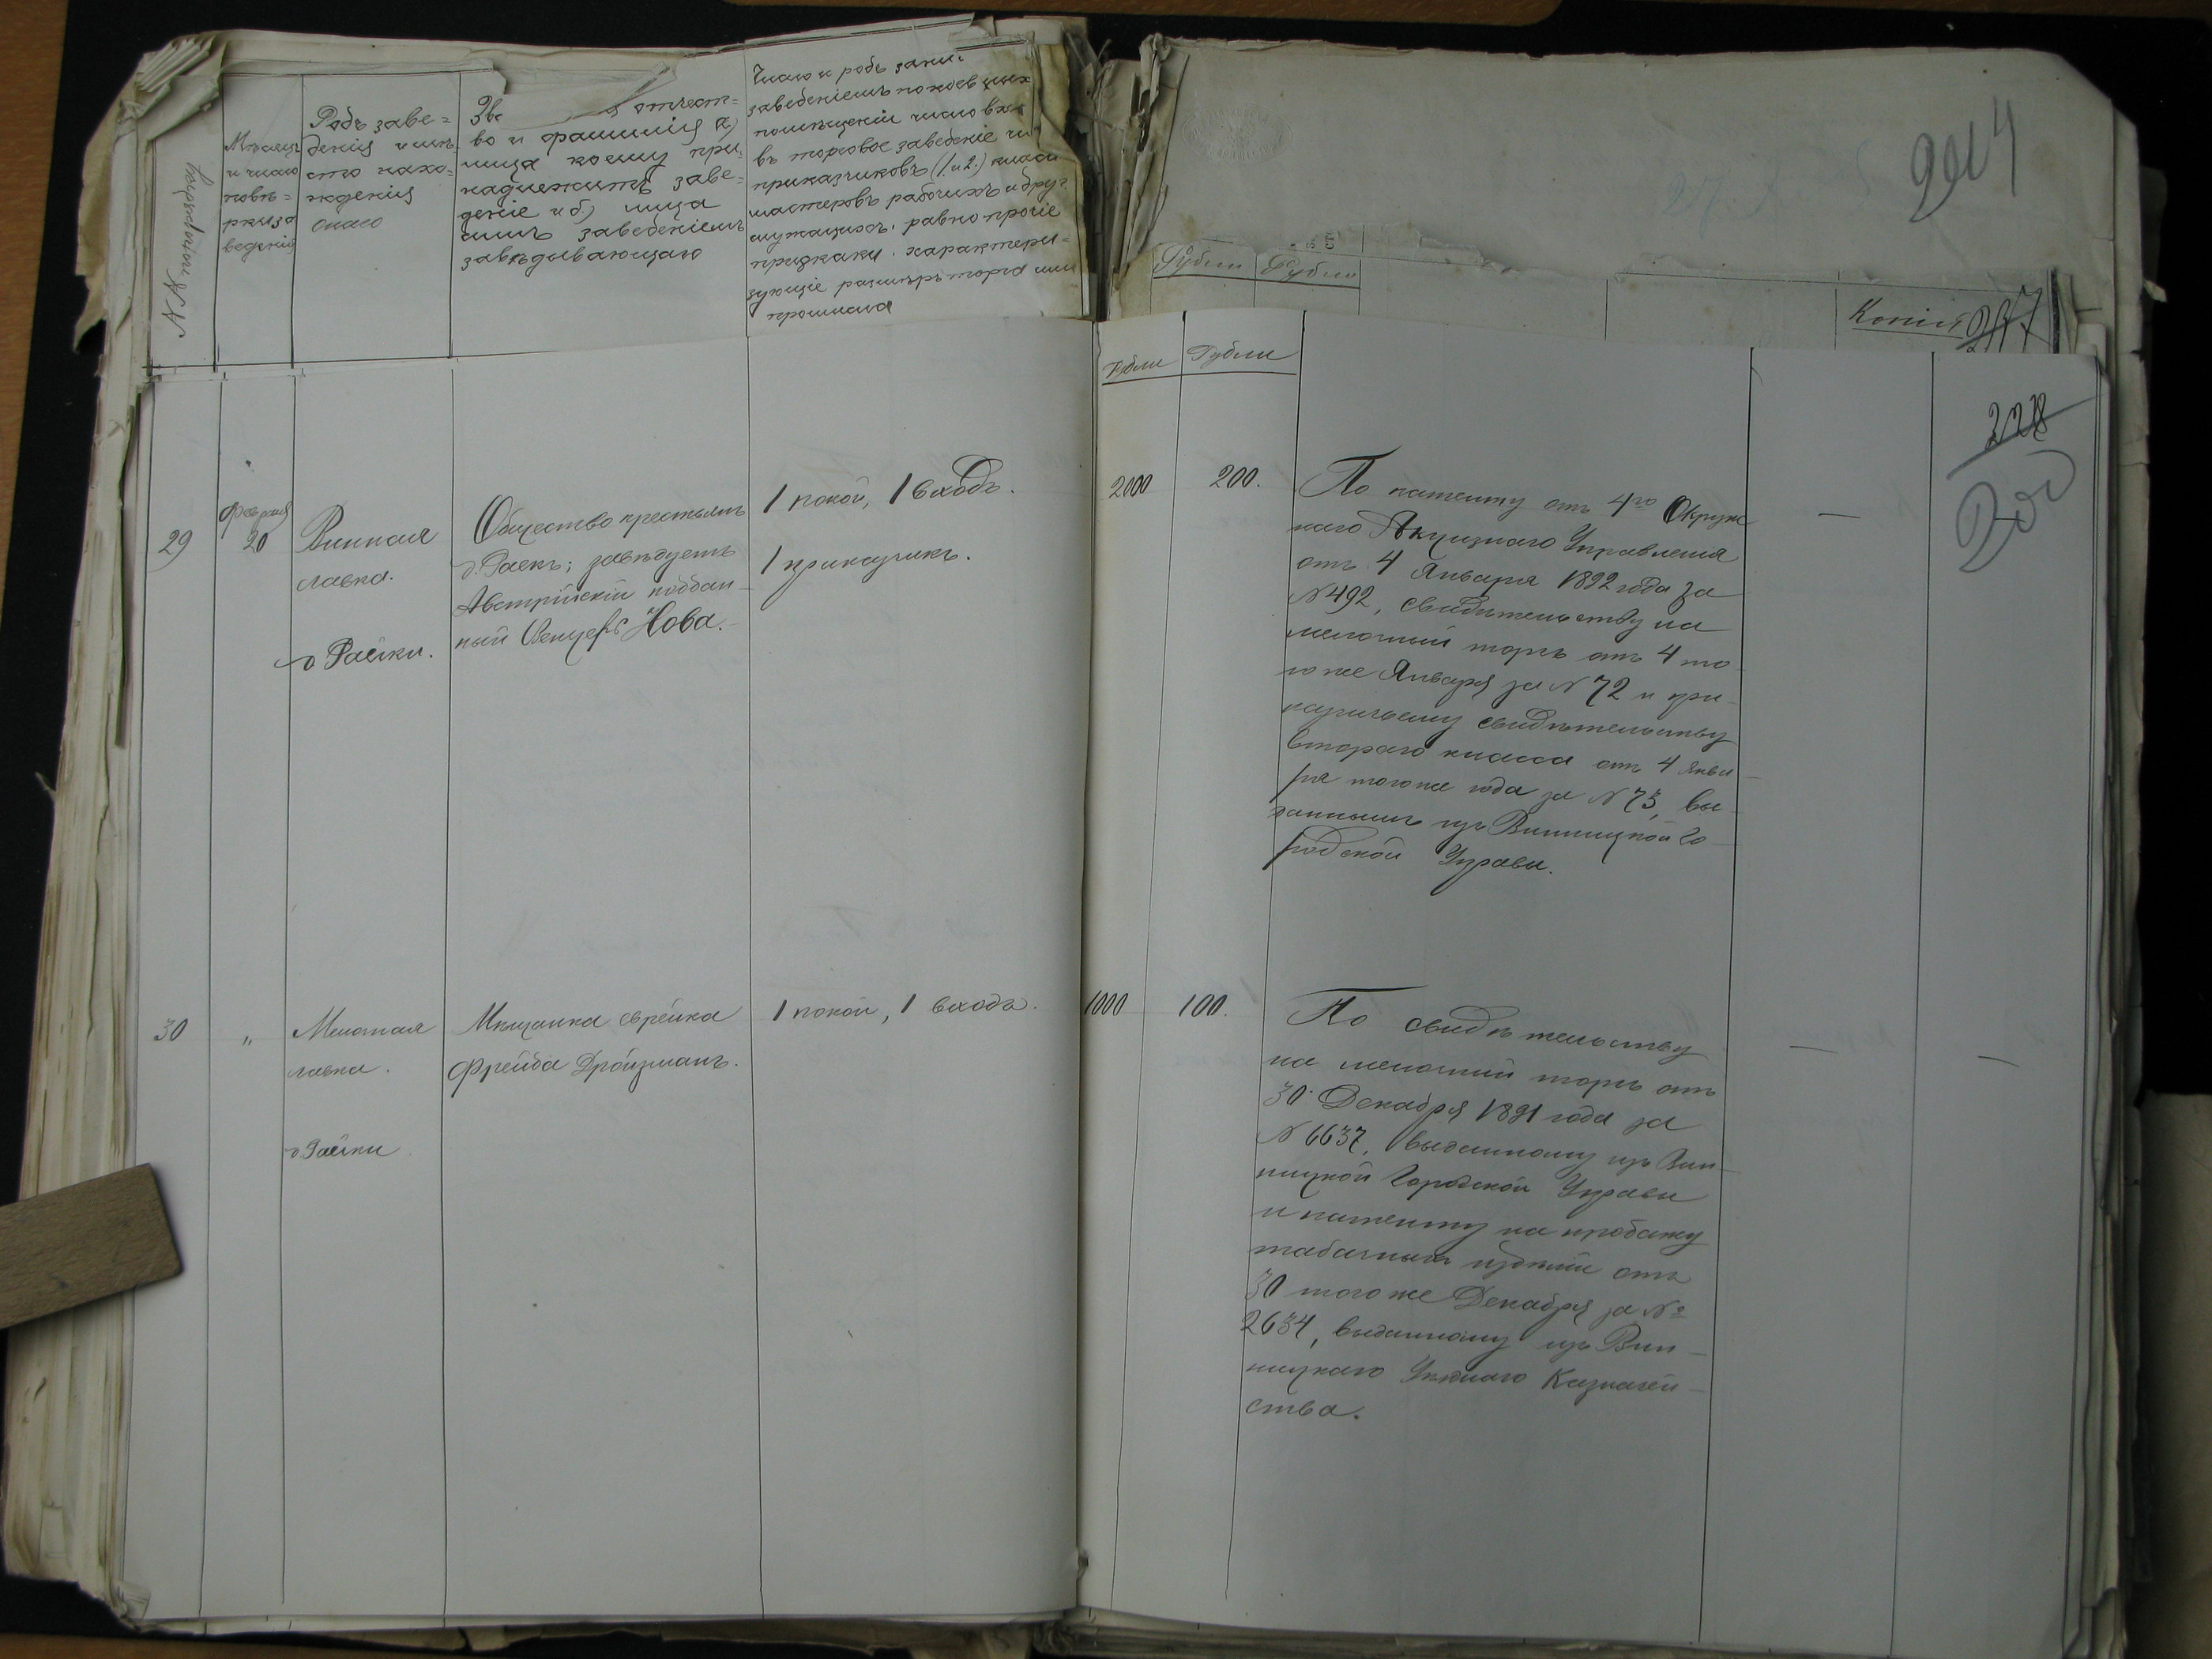 №№ попорядку
Мѣсяцъ
и число
повѣ=
рки за
веденія
Родъ заве=
денія и мѣ
сто нахо=
жденія
онаго
Зв отчест=
во и фамилія а)
лица коему при=
надлежитъ заве=
деніе и б) лица
симъ заведеніемъ
завѣдывающаго
Число и родъ зани
заведеніемъ покоевъ иныхъ
помѣщеній число вхо
въ торговое заведеніе чи
приказчиковъ (1 и 2) класса
мастеровъ рабочихъ и друг
служащихъ, равно прочіе
признаки, характери=
зующіе размѣръ торга или
промысла
Рубли Рубли
Копія
217
904
Рубли Рубли
228
29
Февраля
20
Винная
лавка.
д. Раёки.
Общество крестьянъ
д. Раекъ; завѣдуетъ
Австрійскій поддан-
ный Венцель Нова.
1 покой, 1 входъ.
1 приказчикъ.
2000
200.
По патенту отъ 4го Окруж
наго Акцизнаго Управленія
отъ 4 Января 1892 года за
№ 492, свидѣтельству на
мелочный торгъ отъ 4 то-
го же Января за № 72 и при-
казчичьему свидѣтельству
втораго класса отъ 4 Янва-
ря того же года за № 73, вы-
даннымъ изъ Винницкой Го-
родской Управы.
—
30
"
Мелочная
лавка.
д. Раёки
Мѣщанка еврейка
Фрейда Дройзманъ.
1 покой, 1 входъ.
1000
100.
По свидѣтельству
на мелочный торгъ отъ
30 Декабря 1891 года за
№ 6637, выданному изъ Вин-
ницкой Городской Управы
и патенту на продажу
табачныхъ издѣлій отъ
30 того же Декабря за №
2634, выданному изъ Вин-
ницкаго Уѣзднаго Казначей-
ства.
—
—